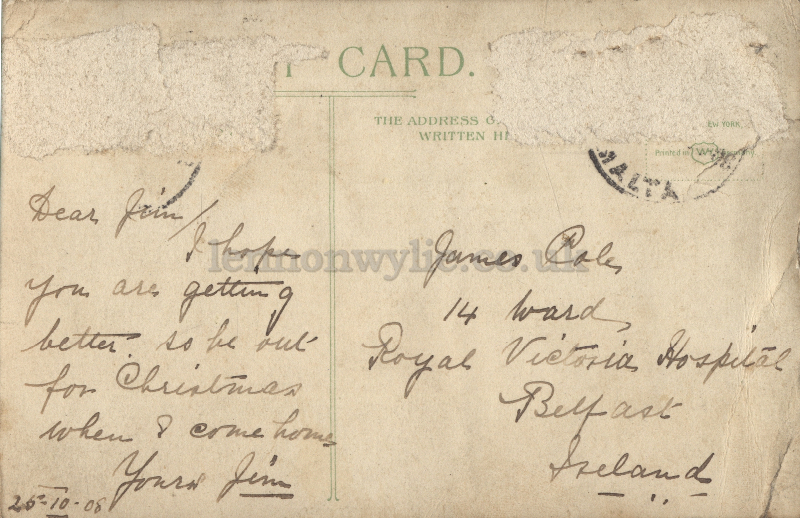 CARD.
THE ADDRESS
WRITTEN
EW YORK
Printed in
MALTA
Dear Jim/
I hope
you are getting
better. so be out
for Christmas
when I come home
Yours Jim
25-10-08
James Cole,
14 Ward,
Royal Victoria Hospital
Belfast
Ireland
lennonwylie.co.uk